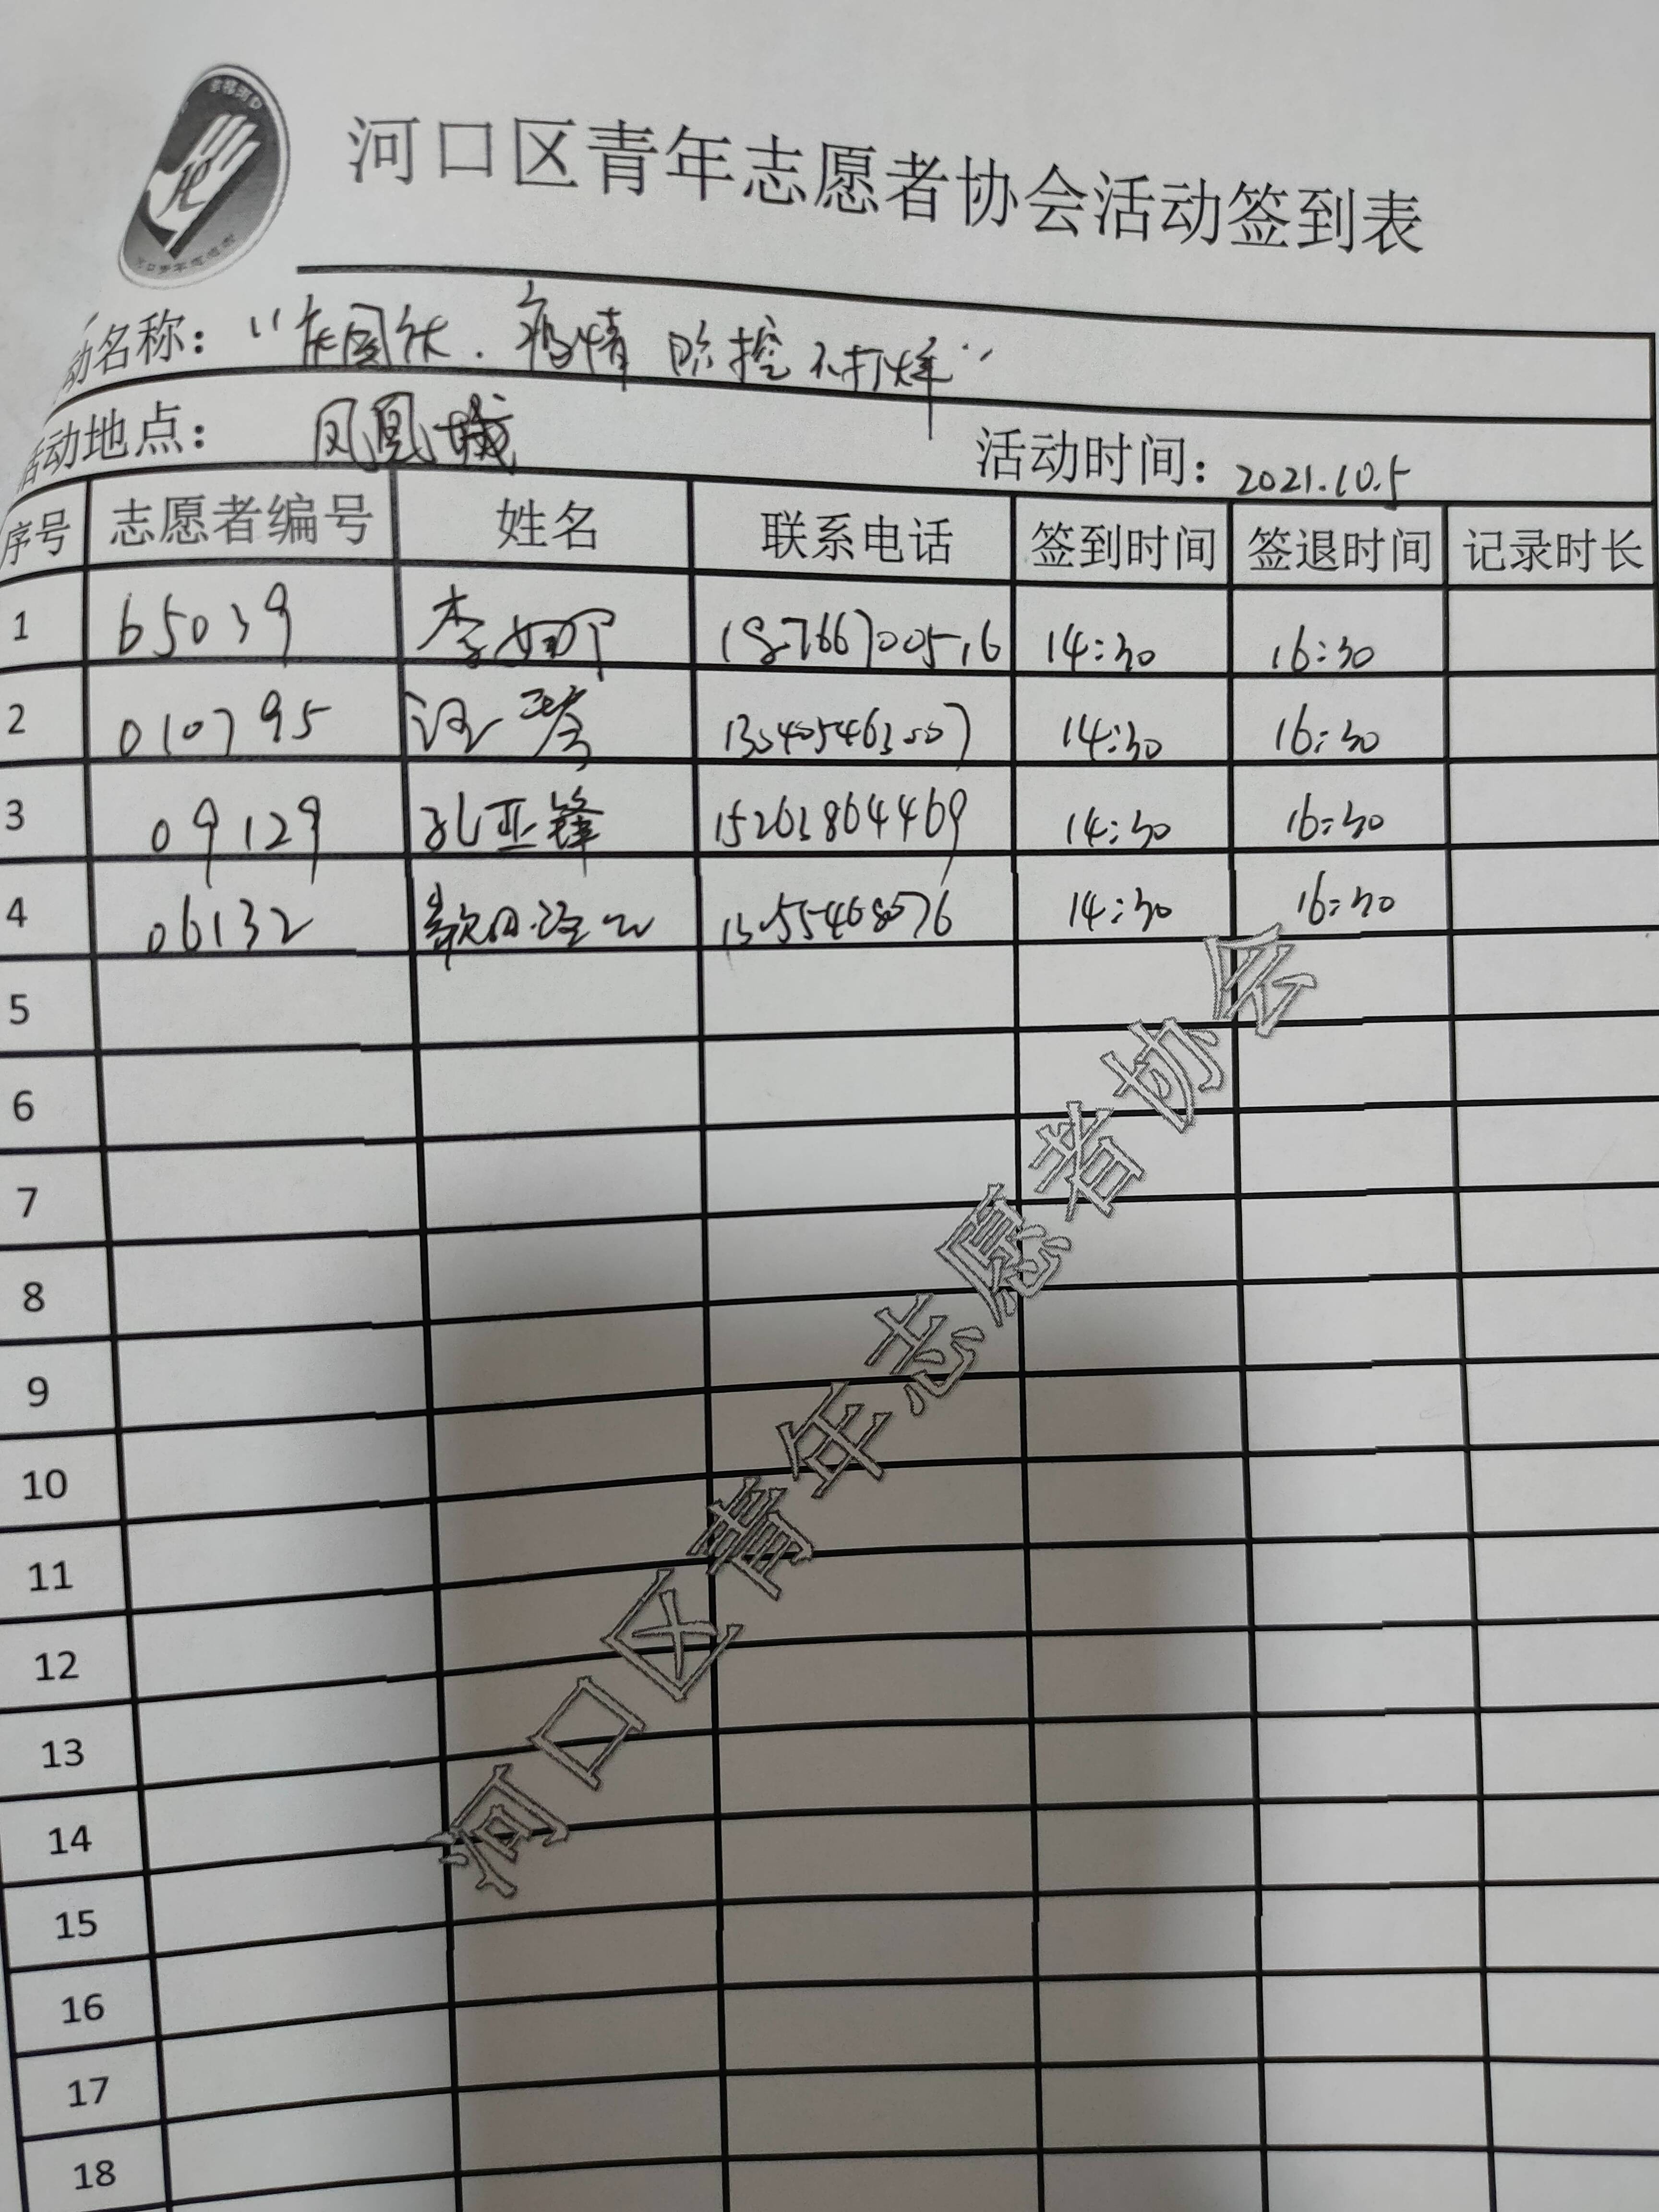 河口区青年志愿者协会活动签到表
动名称：“庆国庆.疫情防控不打烊”
活动地点： 凤凰城 活动时间：2021.10.5
序号 志愿者编号 姓名 联系电话 签到时间 签退时间 记录时长
1 65039 李 18766700516 14:30 16:30
2 010795 汪琴 14:30 16:30
3 09129 孔亚锋 15263864469 14:30 16:30
4 06132 14:30 16:30
5
6
7
8
9
10
11
12
13
14
15
16
17
18
河口区青年志愿者协会